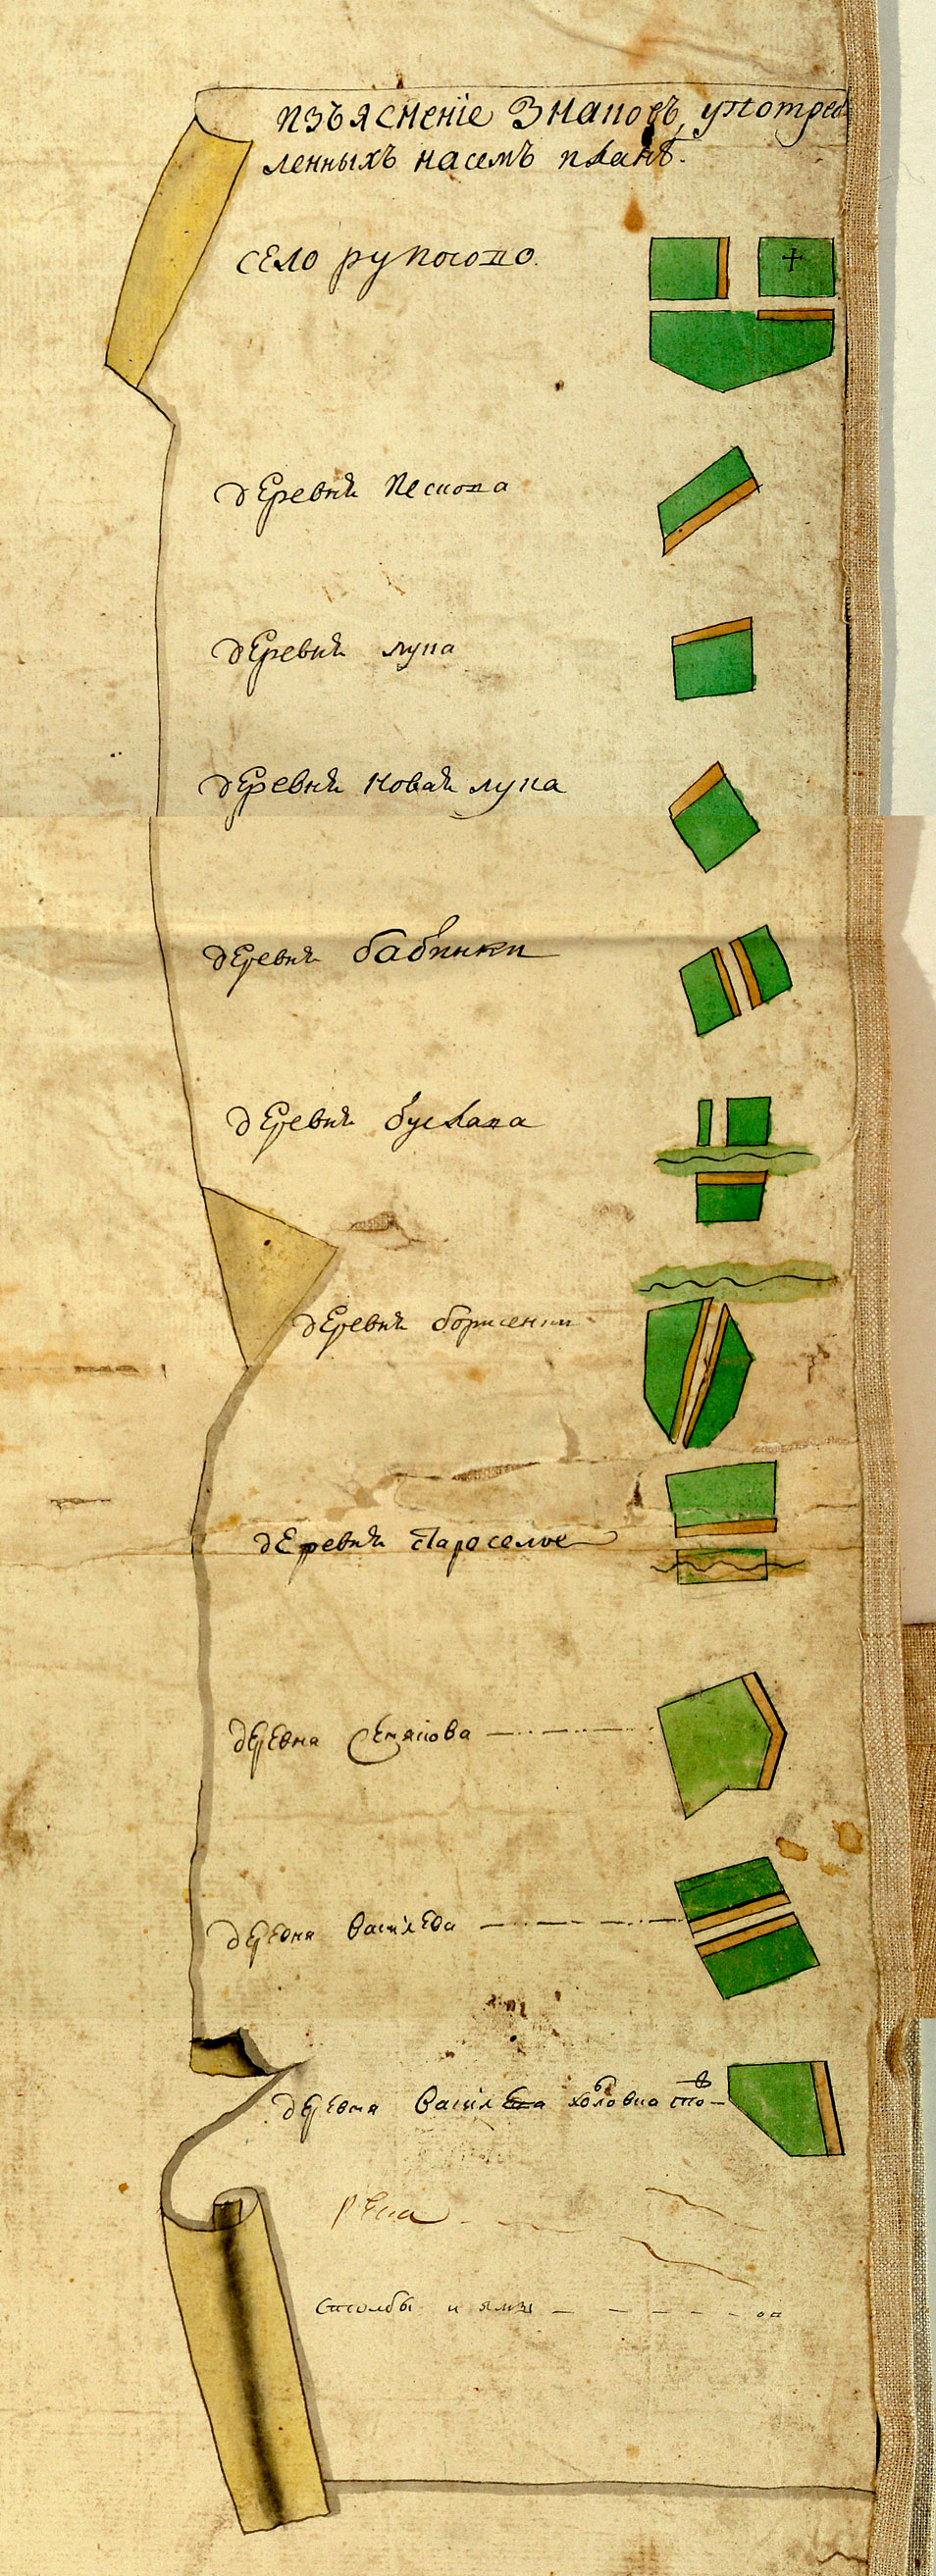 Изъясненіе Знаковъ, употреб
ленныхъ насемъ планѣ.
село рукогово.
деревня Пескова
деревня лука
деревня новая лука
деревня бабинки
деревня буслава
деревня борисенки
деревня Староселье
деревна
деревна Василева
деревна Василева
рѣка
столбы и ямы